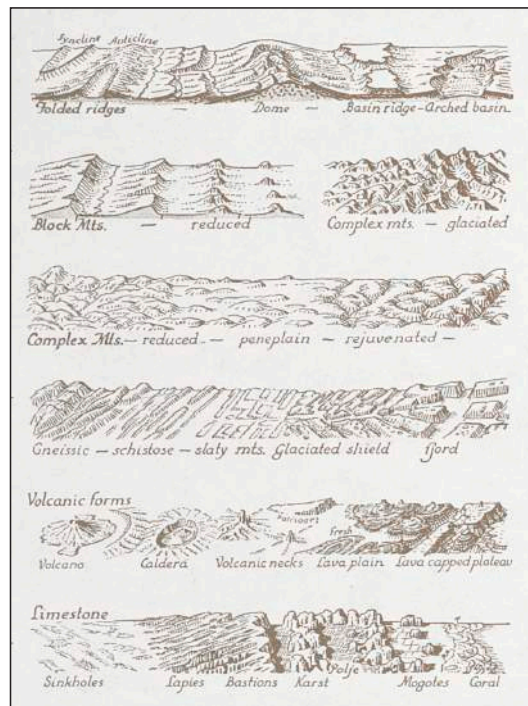 Syncline Anticline
Folded ridges — Dome — Basin ridge – Arched basin
Block Mts. — reduced
Complex mts. — glaciated
Complex Mts. — reduced — peneplain — rejuvenated —
Gneissic — schistose — slaty mts. Glaciated shield fjord
Volcanic forms
Fresh
Volcano Caldera Volcanic necks Lava plain Lava capped plateau
Limestone
Polje
Sinkholes Lapies Bastions Karst Mogotes Coral